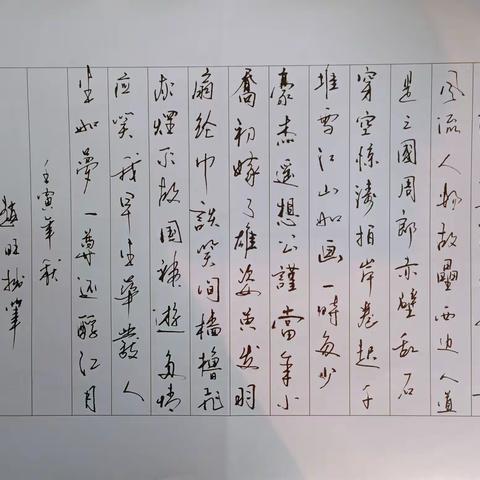 风流人物故壘西边人道
是三國周郎赤壁乱石
穿空惊涛拍岸卷起千
堆雪江山如画一時多少
豪杰遥想公謹當年小
喬初嫁了雄姿英发羽
扇纶巾談笑间樯櫓飛
灰煙灭故國神遊多情
应笑我早生華髮人
生如夢一尊还酹江月
壬寅年秋
趙旺拙筆